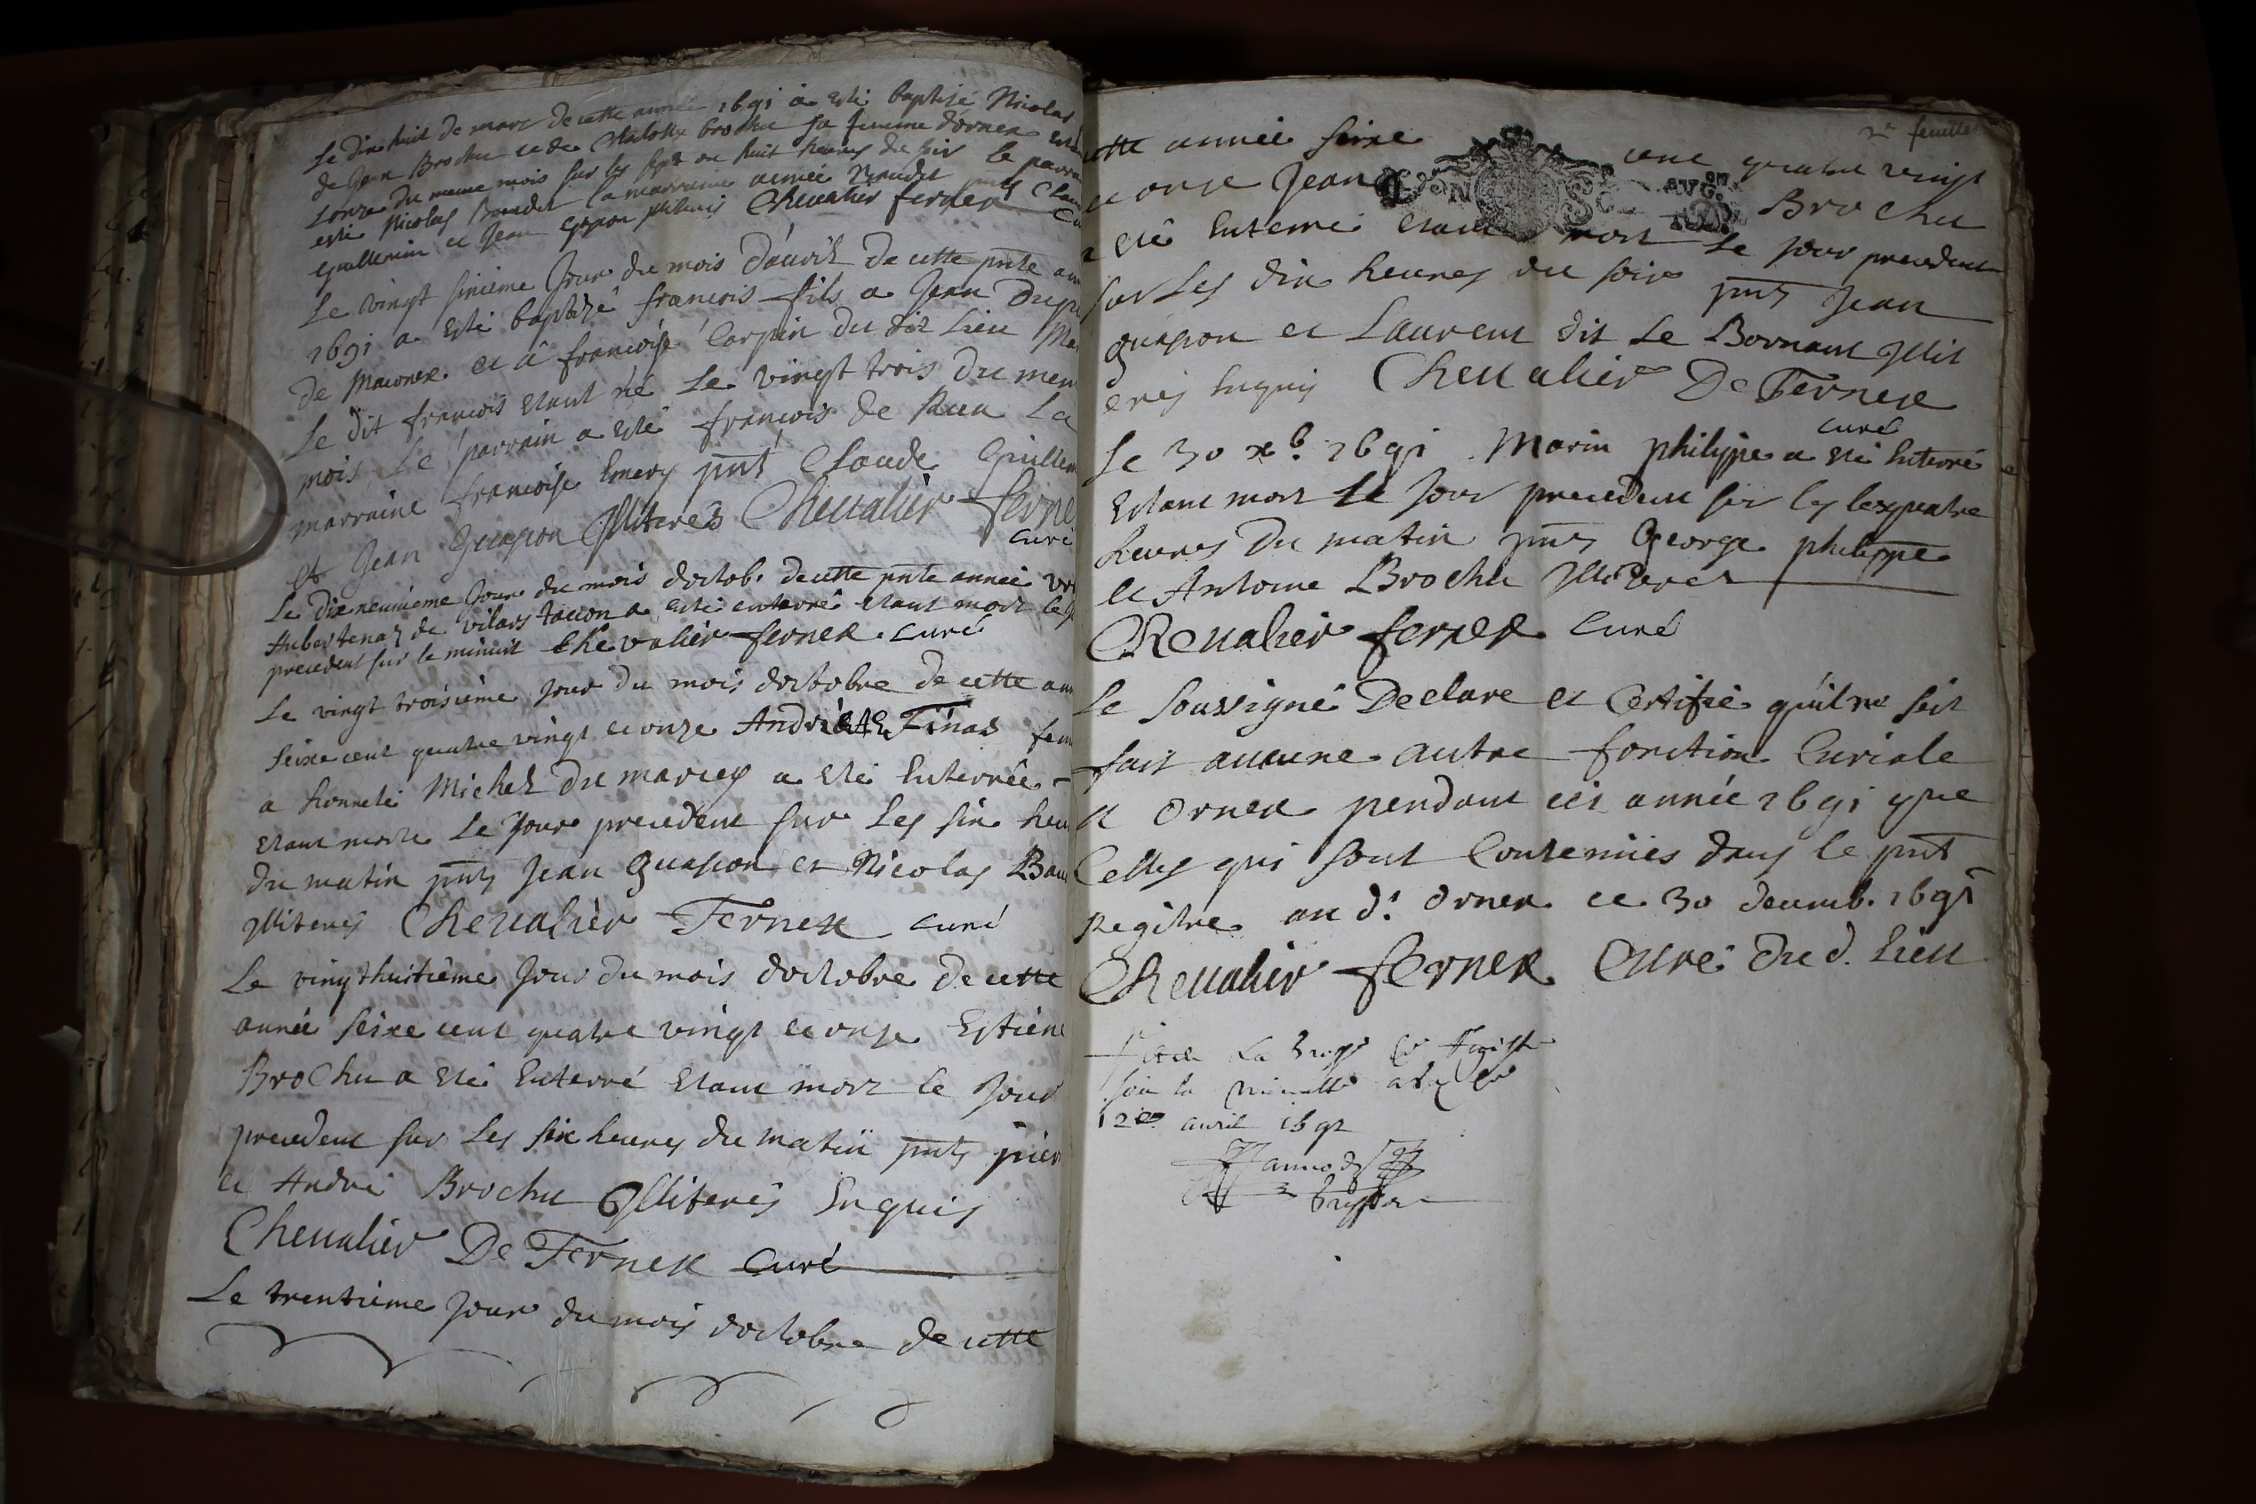 Le dix huit de mars de cette année 1691 a esté baptizé Nicolas
de Jean Brochu et de Brochu sa femme dornex
Lonze du meme mois sur les sept ou huit heures du soir le parra
esté Nicolas Baudet la marraine aimée Naudet pnts Clau
Guillermin et Jean Guapon illiteris Chevalier fernex
Le vingt sixième Jour du mois d'auril de cette pnte ann
1691 a esté baptizé francois fils a Jean Dupu
de Maconex et a francoise Carpin du dit Lieu Ma
Le dit francois etant né Le vingt trois du mem
mois Le parrain a esté francois de La
marraine francoise Emery pnt Claude Guillem
et Jean Guapon Illiterés Chevalier ferne
curé
Le Dixneuuieme Jour du mois doctob. de cette pnte année
Hubertenaz de vilars tacon a esté enterré etant mort le J
precedent sur le minuit Chevalier fernex curé
Le vingt troisième jour du mois doctobre de cette ann
Seixe cent quatre vingt et onze Andriete Tinas fem
a honneté Michel Du marcey a eté Enterrée
etant morte Le Jour precedent sur Les six heu
du matin pnts Jean Guapon et Nicolas Bau
Illiterés Chevalier Fernex curé
Le vingthuitième Jour du mois doctobre De cette
année seixe cent quatre vingt et onze Estiene
Brochu a eté Enterré etant mort le Jour
precedent sur Les six heures du matin pnts pier
et André Brochu Illiterés Enquis
Chevalier De Fernex curé
Le trentième Jour du mois doctobre de cette
2e feuillet
cette année seixe cent quatre vingt
et onze Jean Brochu
a eté Enterré etant mort Le Jour precedent
sur Les dix heures du soir pnts Jean
guapon et Laurent dit Le Bornant Illit
erés Enquis Chevalier De Fernex
curé
Le 30 xb. 1691 Marin philippe a eté Enterré
Estant mort Le Jour precedent sur les lexquatre
heures Du matin pnts George philippe
et Antoine Brochu Illiterés
Chevalier fernex Curé
Le Soussigné Declare et Certifie qu'il ne s'est
fait aucune autre fonction Curiale
a Ornex pendant cet année 1691 que
Celles qui sont Contenües dans le pnt
Regitre au d. Ornex ce 30 decemb. 1691
Chevalier fernex Curé Du d. Lieu
la
12e auril 1692